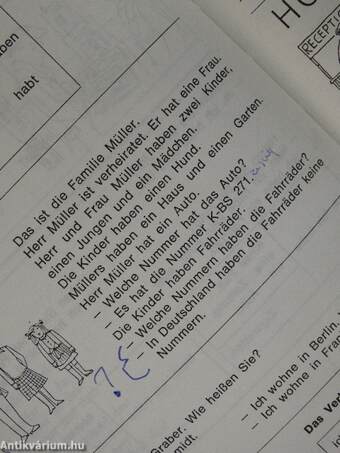 aben
habt
RECEPTION
Das ist die Familie Müller.
Herr Müller ist verheiratet. Er hat eine Frau.
Herr und Frau Müller haben zwei Kinder,
einen Jungen und ein Mädchen.
Die Kinder haben einen Hund.
Müllers haben ein Haus und einen Garten.
Herr Müller hat ein Auto.
– Welche Nummer hat das Auto?
– Es hat die Nummer K-BS 271.
Die Kinder haben Fahrräder.
– Welche Nummern haben die Fahrräder?
– In Deutschland haben die Fahrräder keine
Nummern.
Graber. Wie heißen Sie?
midt.
– Ich wohne in Berlin.
– Ich wohne in Fran
Das Ver
Antikvárium.hu